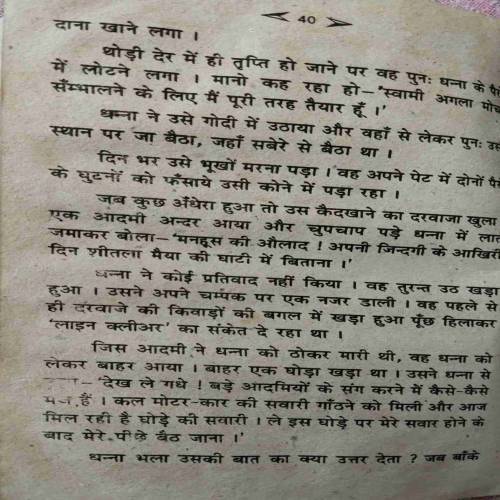 40
दाना खाने लगा ।
थोड़ी देर में ही तृप्ति हो जाने पर वह पुनः धन्ना के
में लोटने लगा । मानो कह रहा हो–'स्वामी अगला
सँम्भालने के लिए मैं पूरी तरह तैयार हूँ ।'
धन्ना ने उसे गोदी में उठाया और वहाँ से लेकर पुनः
स्थान पर जा बैठा, जहाँ सबेरे से बैठा था ।
दिन भर उसे भूखों मरना पड़ा । वह अपने पेट में दोनों
के घुटनों को फँसाये उसी कोने में पड़ा रहा ।
जब कुछ अँधेरा हुआ तो उस कैदखाने का दरवाजा खुला
एक आदमी अन्दर आया और चुपचाप पड़े धन्ना में लात
जमाकर बोला–'मनहूस की औलाद ! अपनी जिन्दगी के
दिन शीतला मैया की घाटी में बिताना ।'
धन्ना ने कोई प्रतिवाद नहीं किया । वह तुरन्त उठ खड़ा
हुआ । उसने अपने चम्पक पर एक नजर डाली । वह पहले से
ही दरवाजे की किवाड़ों की बगल में खड़ा हुआ पूँछ हिलाकर
'लाइन क्लीअर' का संकेत दे रहा था ।
जिस आदमी ने धन्ना को ठोकर मारी थी, वह धन्ना को
लेकर बाहर आया । बाहर एक घोड़ा खड़ा था । उसने धन्ना से
–'देख ले गधे ! बड़े आदमियों के संग करने में कैसे-कैसे
हैं । कल मोटर-कार की सवारी गाँठने को मिली और आज
मिल रही है घोड़े की सवारी । ले इस घोड़े पर मेरे सवार होने के
बाद मेरे पीछे बैठ जाना ।'
धन्ना भला उसकी बात का क्या उत्तर देता ? जब बाँके